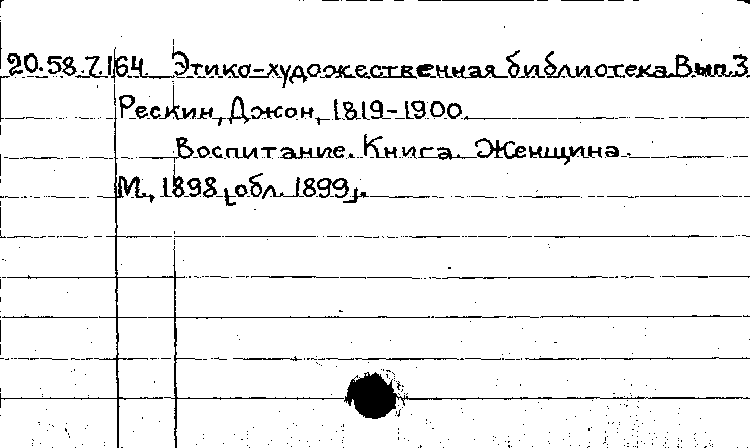 20.58.7.164 Этико-художественная библиотека. Вып. 3
Рескин, Джон, 1819-1900.
Воспитание. Книга. Женщина.
М., 1898 [обл. 1899].